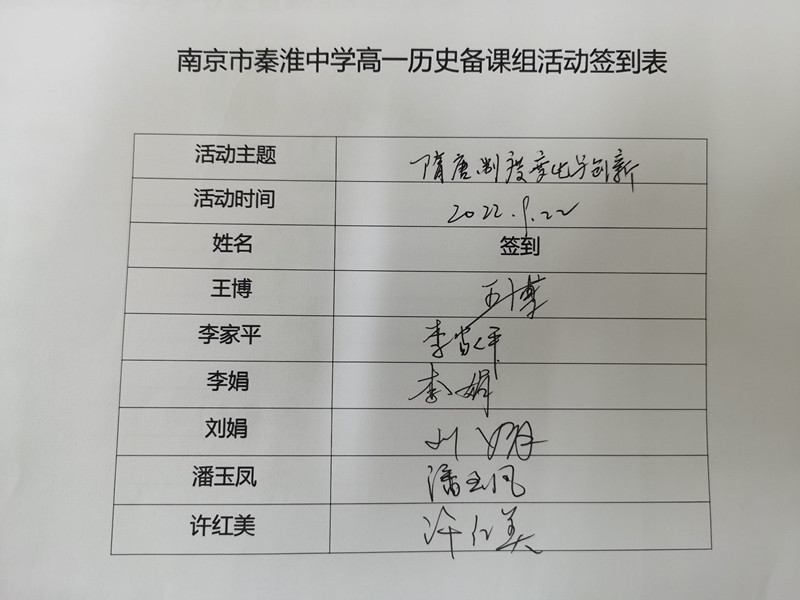 南京市秦淮中学高一历史备课组活动签到表
活动主题 隋唐制度变化与创新
活动时间 2022.9.22
姓名 签到
王博 王博
李家平 李家平
李娟 李娟
刘娟 刘娟
潘玉凤 潘玉凤
许红美 许红美